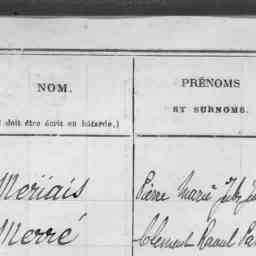 NOM.
PRÉNOMS
ET SURNOMS.
doit être écrit en bâtarde,)
Meriais Pierre Marie
Merré Clément Raoul